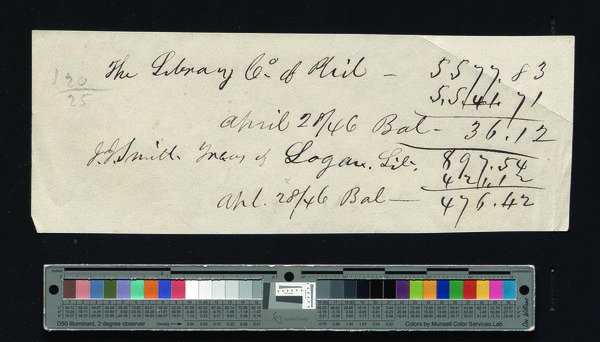 The Library Co. of Phil — 5577.83
5541.71
April 28/46 Bal — 36.12
J.J. Smith. Treas of Logan. Lib. 897.54
421.12
Apl. 28/46 Bal — 476.42
120
25
D50 Illuminant, 2 degree observer
Colors by Munsell Color Services Lab